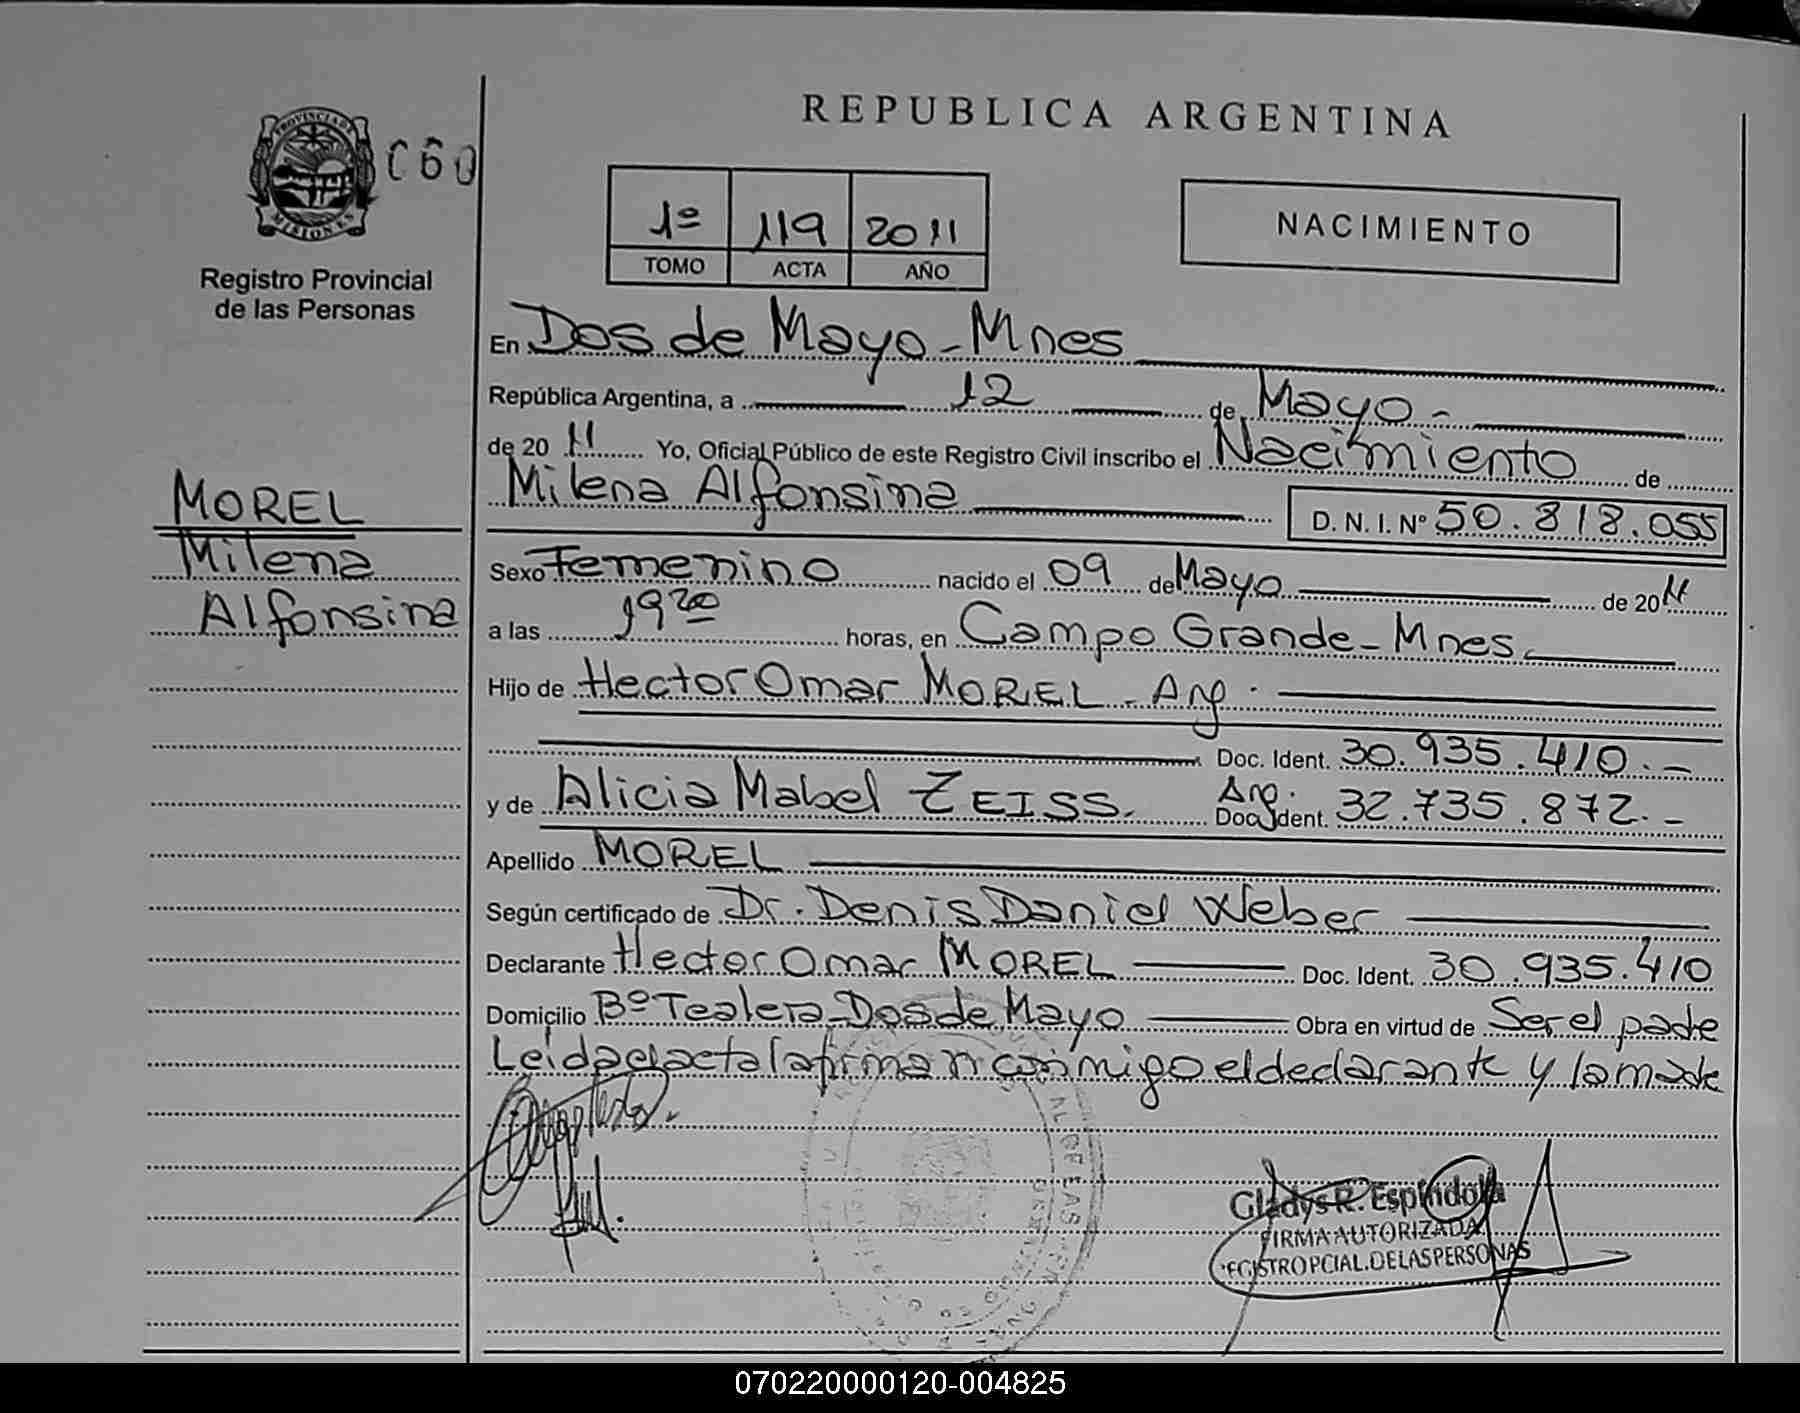 REPUBLICA ARGENTINA
PROVINCIA DE
MISIONES
C60
Registro Provincial
de las Personas
1º 119 2011
TOMO ACTA AÑO
NACIMIENTO
MOREL
Milena
Alfonsina
En Dos de Mayo - Mnes
República Argentina, a 12 de Mayo -
de 20 11 Yo, Oficial Público de este Registro Civil inscribo el Nacimiento de
Milena Alfonsina D. N. I. Nº 50.818.055
Sexo Femenino nacido el 09 de Mayo de 20 11
a las 19 20 horas, en Campo Grande - Mnes.
Hijo de Hector Omar MOREL - Arg.
Doc. Ident. 30.935.410.-
y de Alicia Mabel ZEISS. Arg. Doc. Ident. 32.735.872.-
Apellido MOREL
Según certificado de Dr. Denis Daniel Weber
Declarante Hector Omar MOREL Doc. Ident. 30.935.410
Domicilio Bº Tealera - Dos de Mayo Obra en virtud de Ser el padre
Leida el acta la firman conmigo el declarante y la madre
Gladys R. Espindola
FIRMA AUTORIZADA
REGISTRO PCIAL. DE LAS PERSONAS
070220000120-004825